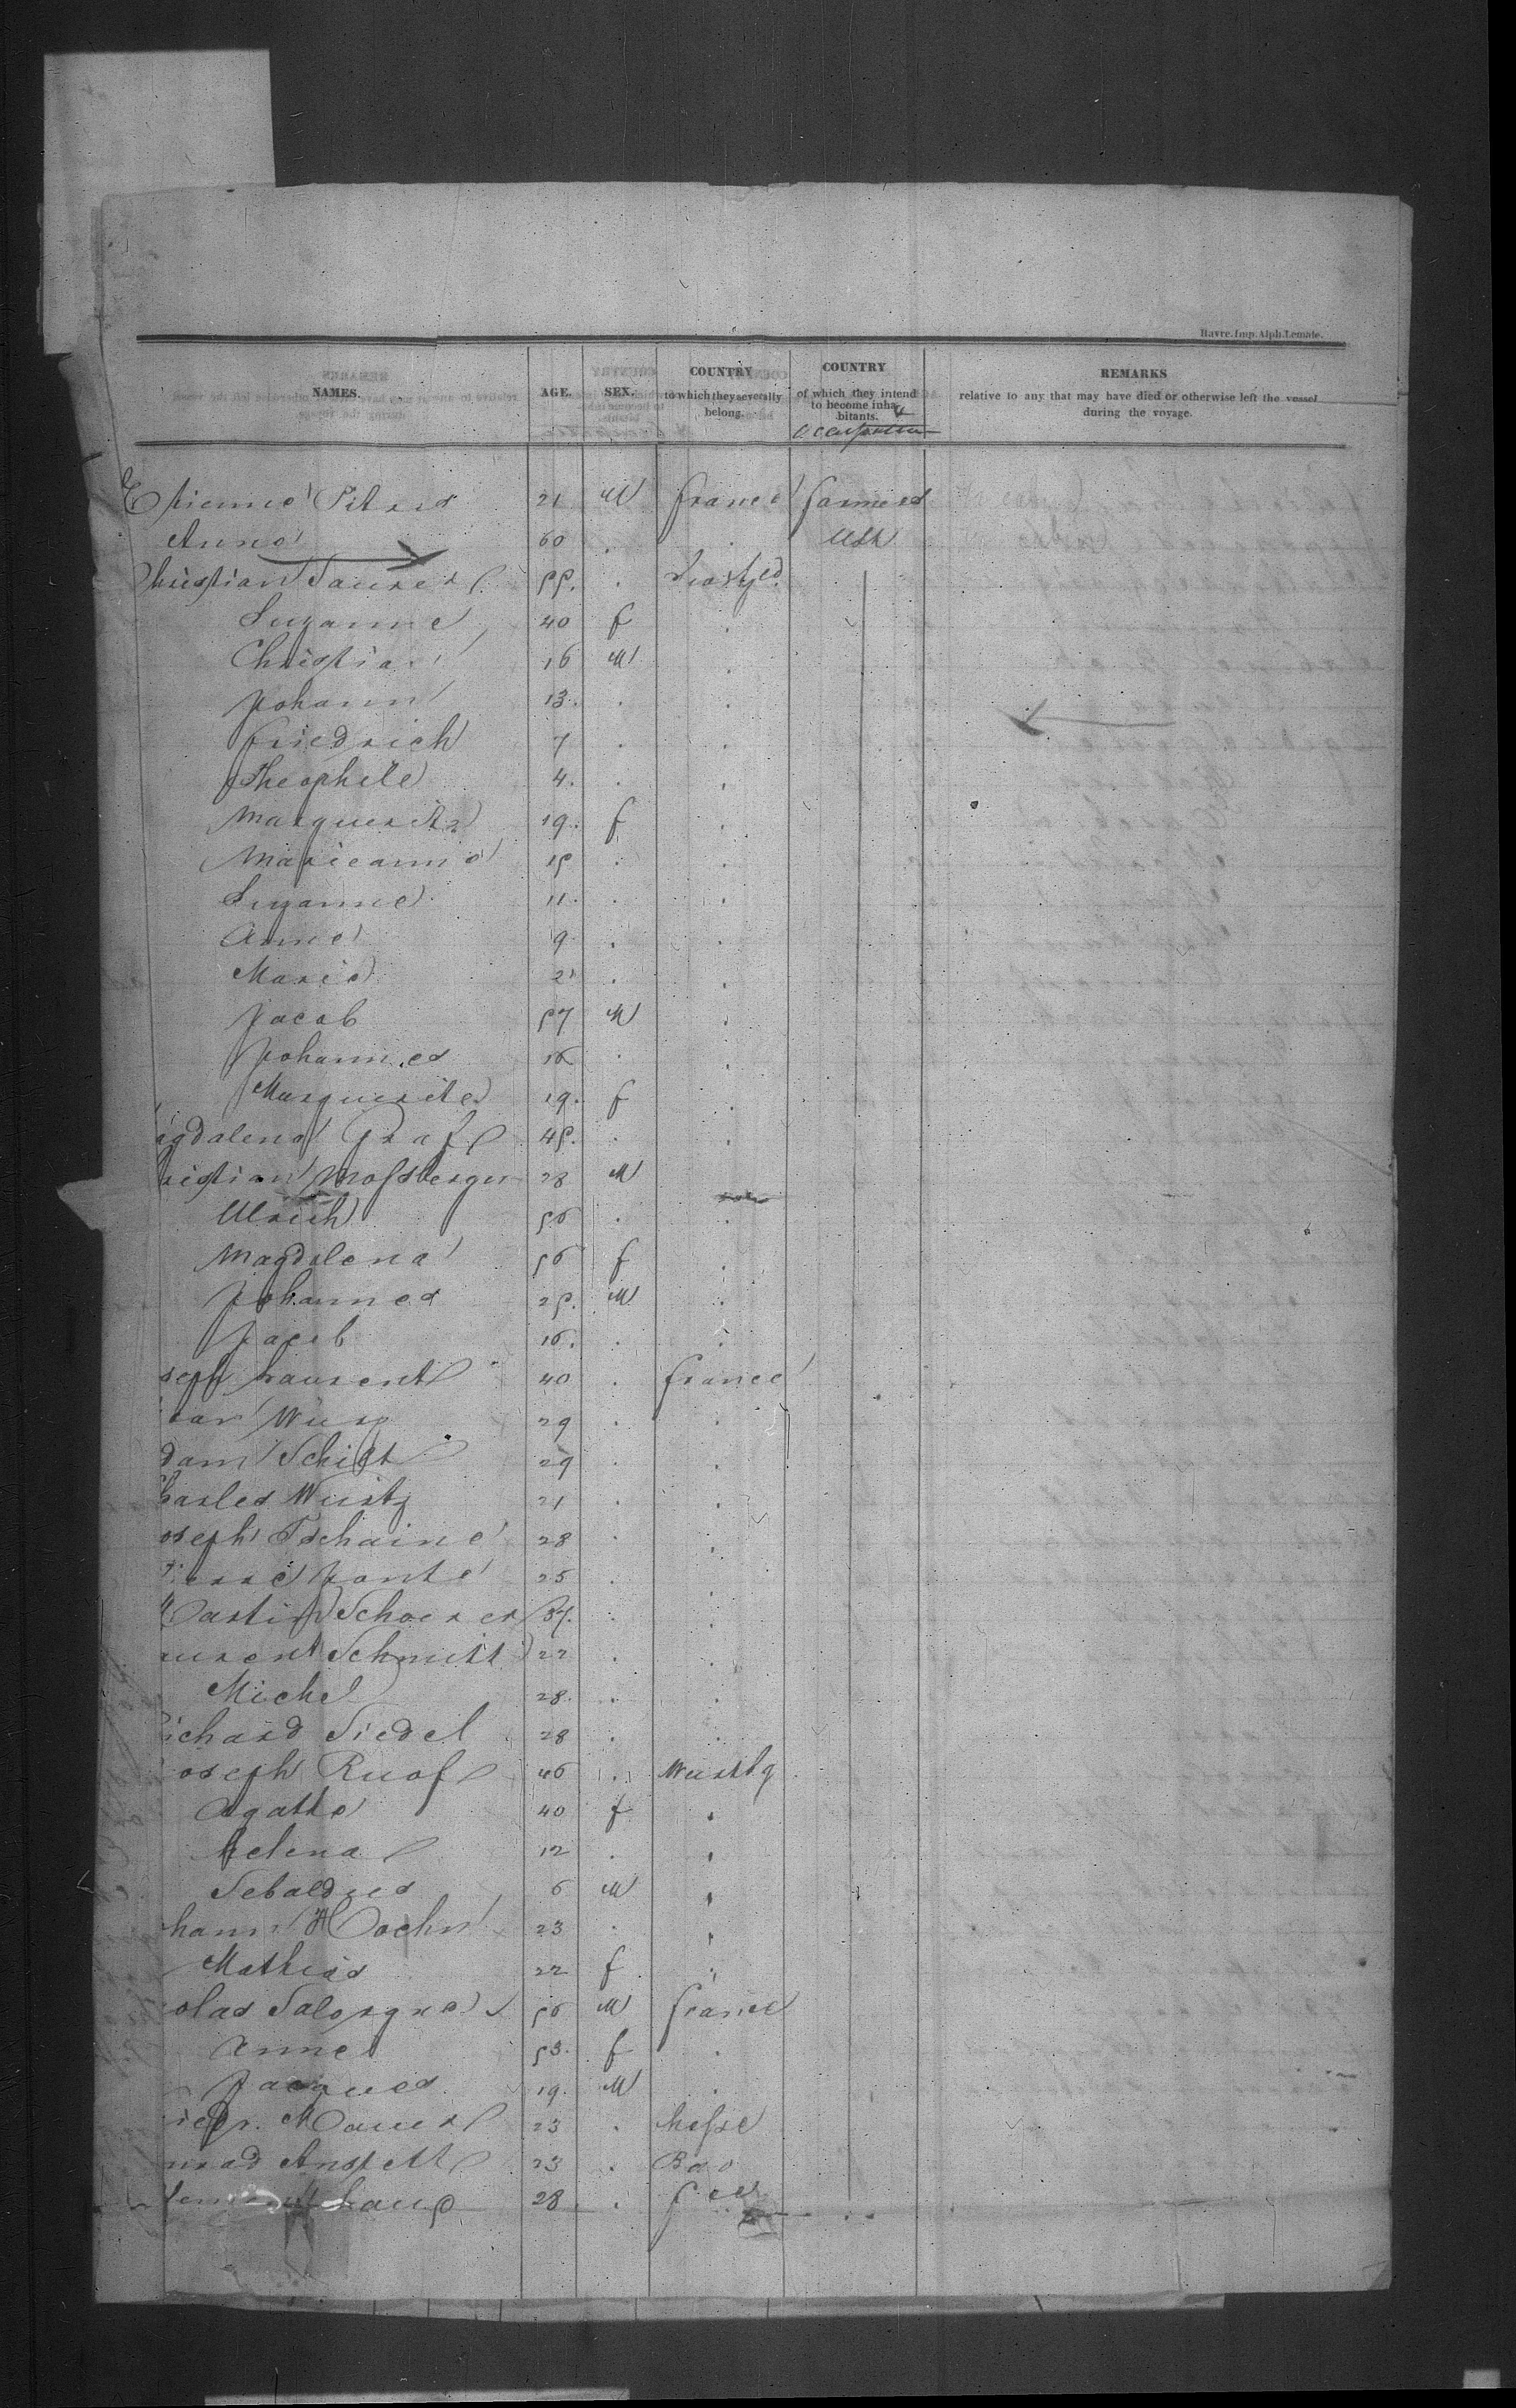 Havre. Imp. Alph. Lemale.
NAMES. AGE. SEX. COUNTRY to which they severally belong. COUNTRY of which they intend to become inhabitants. & occupation REMARKS relative to any that may have died or otherwise left the vessel during the voyage.
Etienne 21 M France farmers
Anne 60 . . USA
Christian Saurer 55. .
Suzanne 40 f .
Christian 16 M .
Johann 13. . .
Friedrich 7 . .
Theophile 4. . .
Marguerite 19. f .
Marieanne 15 . .
Suzanne 11. . .
Anne 9 . .
Marie 21 . .
Jacob 57 M .
Johannes 16 . .
Marguerite 19. f .
agdalena Graf 45. . .
ristian Mossberger 28 M
Ulrich 56 . .
Magdalena 56 f .
Johannes 25. M .
Jacob 16. . .
seph Laurent 40 . France
29 . .
dam Schilt 29 . .
harles Wurtz 21 . .
oseph Tschaine 28 . .
25 . .
Martin Schoerer 37. . .
aurent Schmitt 22 . .
Michel 28. . .
ichard Siedel 28 . .
oseph Ruof 46 . Wurttbg
Agathe 40 f .
helena 12 . .
Sebaldus 6 M .
hann Hoehn 23 . .
22 f .
olas 56 M France
Anne 53. f .
Jacques 19. M .
iedr. Mauer 23 . hesse
nrad Anstett 23 .
28 .